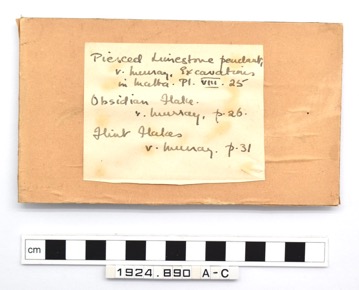 Pierced Limestone pendant,
v. Murray, Excavations
in Malta. Pl. VIII. 25
Obsidian Flake.
v. Murray, p.26.
Flint Flakes
v. Murray. p.31
cm
1924.890 A-C